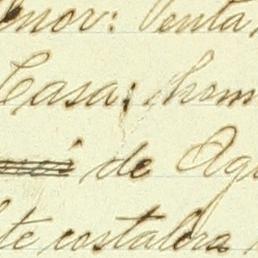 enor: Venta
Casa; hom
de Agu
te costalera